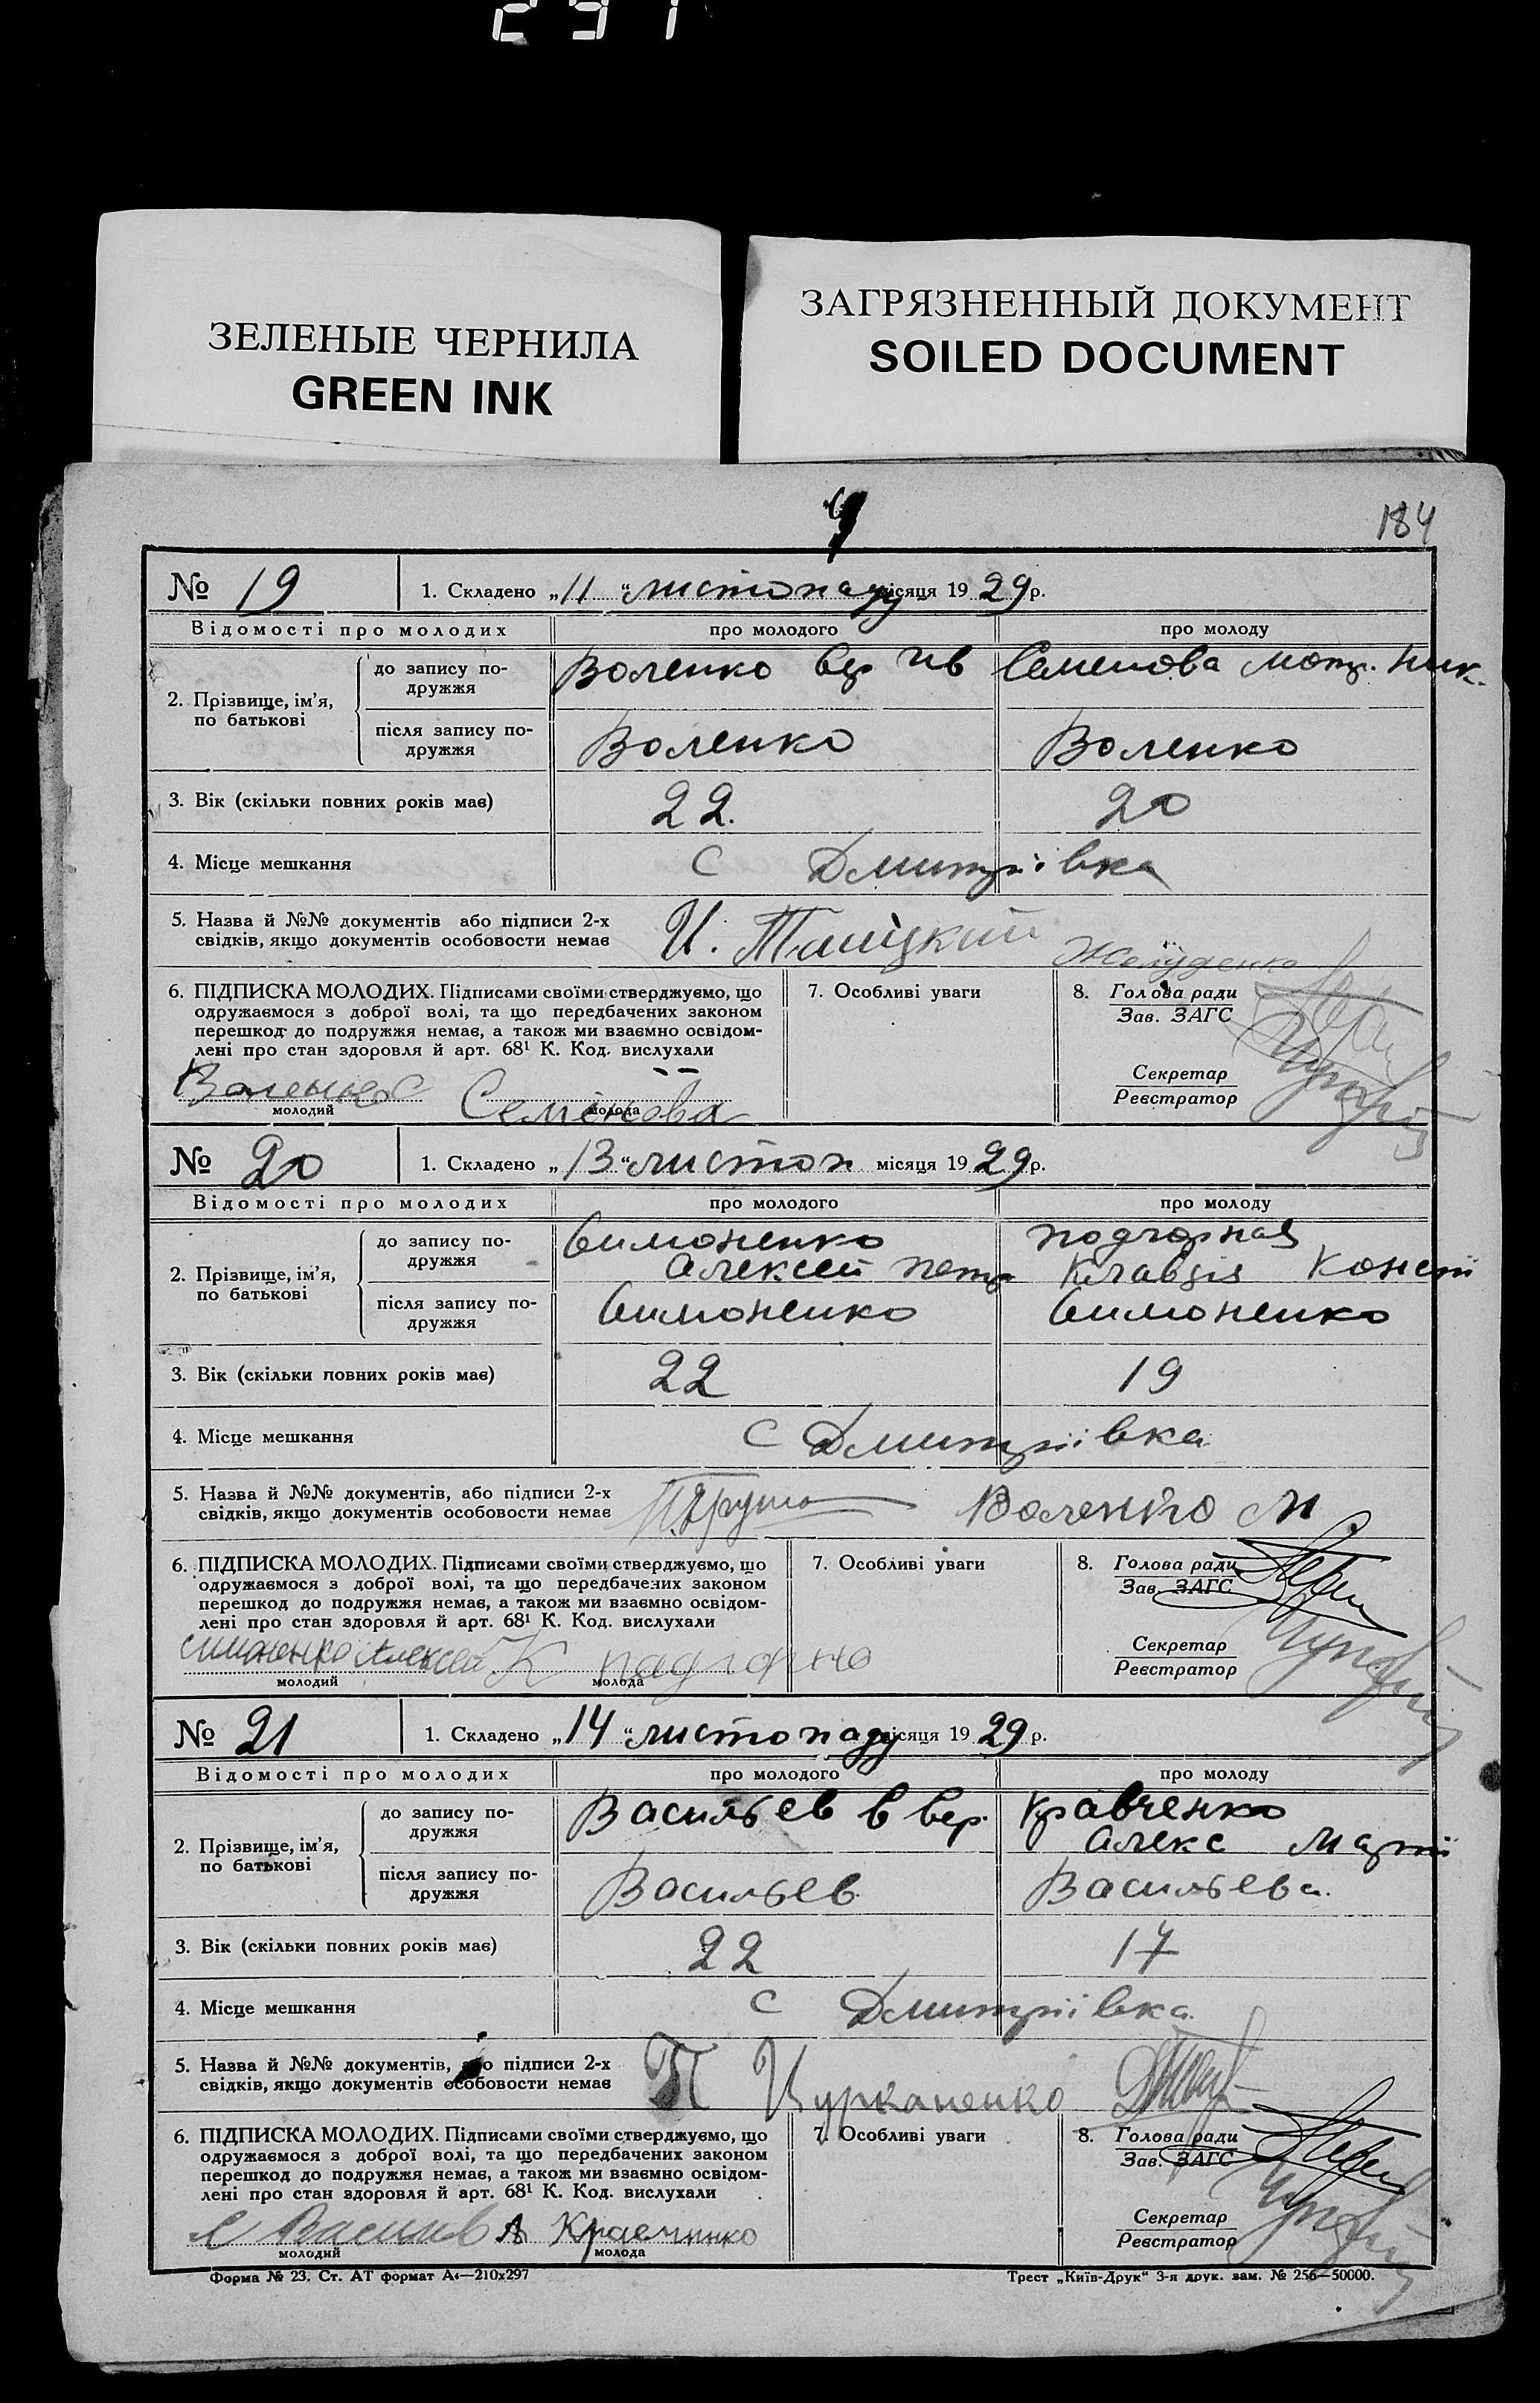 291
ЗЕЛЕНЫЕ ЧЕРНИЛА
GREEN INK
ЗАГРЯЗНЕННЫЙ ДОКУМЕНТ
SOILED DOCUMENT
184
№ 19 1. Складено „11“ листопаду місяця 1929 р.
Відомості про молодих про молодого про молоду
2. Прізвище, ім’я, по батькові
до запису подружжя Воленко Вер Ив Семенова Мотр. Ник.
після запису подружжя Воленко Воленко
3. Вік (скільки повних років має) 22. 20
4. Місце мешкання С Дмитріівка
5. Назва й №№ документів або підписи 2-х
свідків, якщо документів особовости немає И.
6. ПІДПИСКА МОЛОДИХ. Підписами своїми стверджуємо, що
одружаємося з доброї волі, та що передбачених законом
перешкод до подружжя немає, а також ми взаємно освідом-
лені про стан здоровля й арт. 68¹ К. Код. вислухали
Воленко Семенова
молодий молода
7. Особливі уваги
8. Голова ради
Зав. ЗАГС
Секретар
Реєстратор
№ 20 1. Складено „13“ листоп місяця 1929 р.
Відомості про молодих про молодого про молоду
2. Прізвище, ім’я, по батькові
до запису подружжя Симоненко Алексей Петр Подгорная Клавдія Конст
після запису подружжя Симоненко Симоненко
3. Вік (скільки повних років має) 22 19
4. Місце мешкання С Дмитріівка
5. Назва й №№ документів, або підписи 2-х
свідків, якщо документів особовости немає Воленко М
6. ПІДПИСКА МОЛОДИХ. Підписами своїми стверджуємо, що
одружаємося з доброї волі, та що передбачених законом
перешкод до подружжя немає, а також ми взаємно освідом-
лені про стан здоровля й арт. 68¹ К. Код. вислухали
Симоненко Алексей К падгорно
молодий молода
7. Особливі уваги
8. Голова ради
Зав. ЗАГС
Секретар
Реєстратор
№ 21 1. Складено „14“ листопаду місяця 1929 р.
Відомості про молодих про молодого про молоду
2. Прізвище, ім’я, по батькові
до запису подружжя Васильев В Вер. Кравченко Алекс
після запису подружжя Васильев Васильева.
3. Вік (скільки повних років має) 22 17
4. Місце мешкання С Дмитріівка
5. Назва й №№ документів, або підписи 2-х
свідків, якщо документів особовости немає П Цурканенко
6. ПІДПИСКА МОЛОДИХ. Підписами своїми стверджуємо, що
одружаємося з доброї волі, та що передбачених законом
перешкод до подружжя немає, а також ми взаємно освідом-
лені про стан здоровля й арт. 68¹ К. Код. вислухали
А Кравчинко
молодий молода
7. Особливі уваги
8. Голова ради
Зав. ЗАГС
Секретар
Реєстратор
Форма № 23. Ст. АТ формат А₄—210x297
Трест „Київ-Друк“ 3-я друк. зам. № 256—50000.